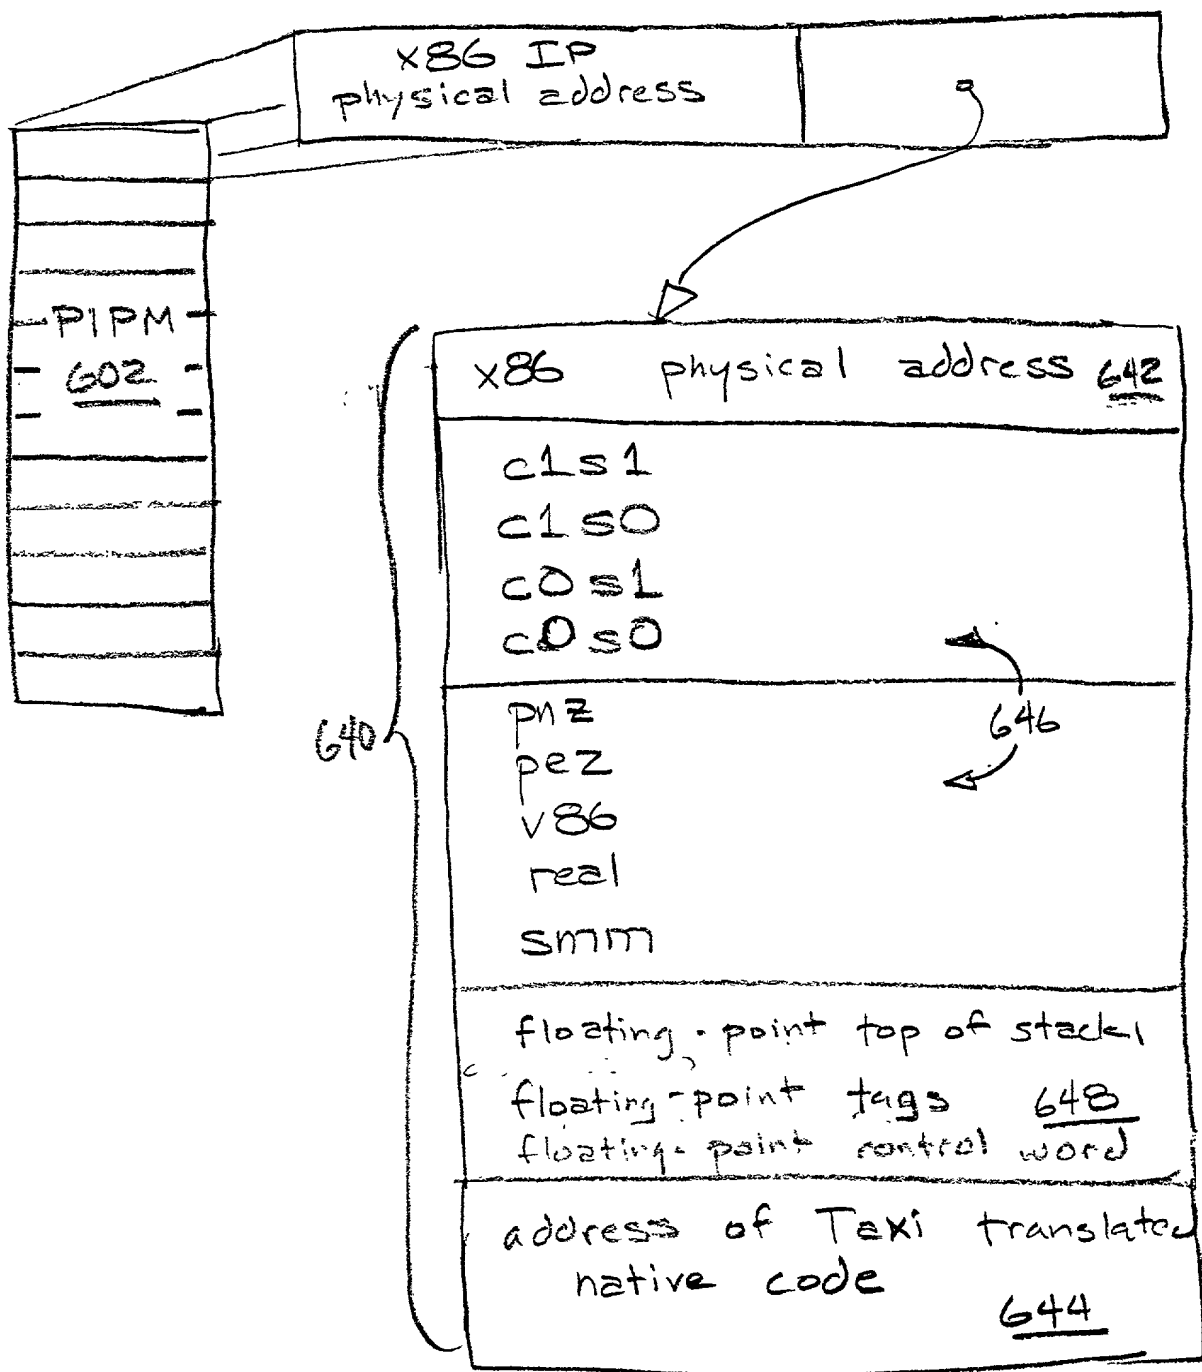 x86 IP
physical address
PIPM
602
x86 physical address 642
c1s1
c1s0
c0s1
c0s0
pnz
646
640
pez
v86
real
smm
floating-point top of stack
floating-point tags 648
floating-point control word
address of Taxi translated
native code
644